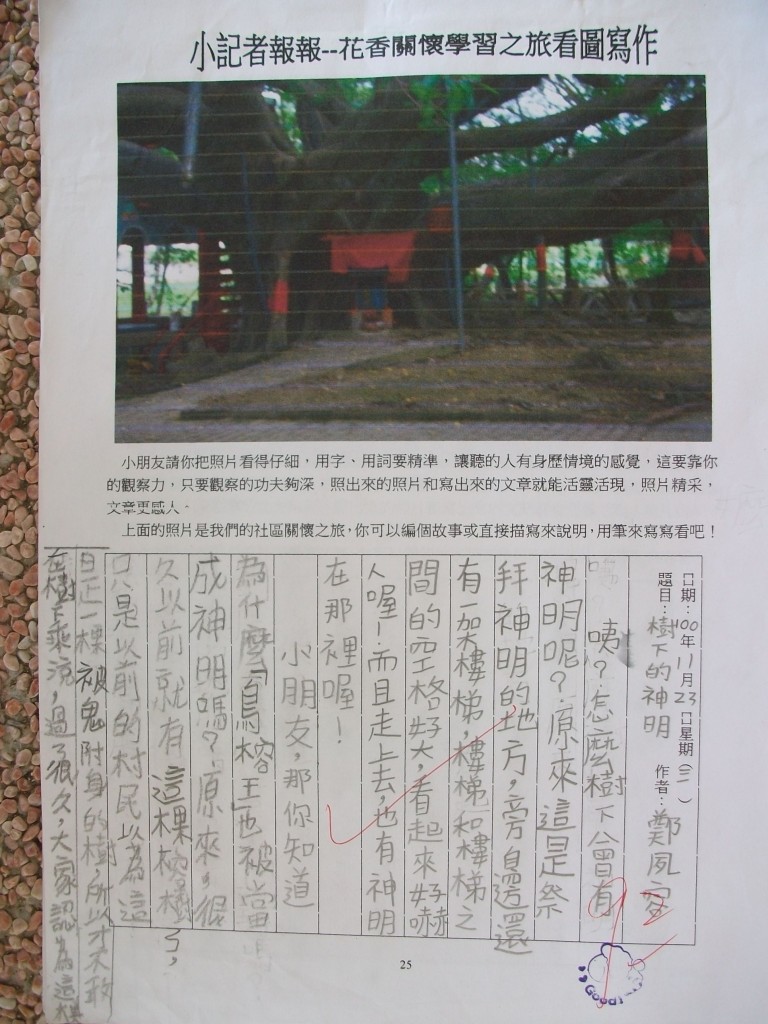 小記者報報--花香關懷學習之旅看圖寫作
小朋友請你把照片看得仔細，用字、用詞要精準，讓聽的人有身歷情境的感覺，這要靠你
的觀察力，只要觀察的功夫夠深，照出來的照片和寫出來的文章就能活靈活現，照片精采，
文章更感人。
上面的照片是我們的社區關懷之旅，你可以編個故事或直接描寫來說明，用筆來寫寫看吧！
日期：100年11月23日星期（三）
題目：樹下的神明 作者：鄭夙容
咦？怎麼樹下會有
神明呢？原來這是祭
拜神明的地方，旁邊還
有一架樓梯，樓梯和樓梯之
間的空格好大，看起來好嚇
人喔！而且走上去，也有神明
在那裡喔！
小朋友，那你知道
為什麼「鳥榕王」也被當
成神明嗎？原來，很
久以前就有這棵榕樹了，
只是以前的村民以為這
是一棵被鬼附身的樹，所以才不敢
在樹下乘涼，過了很久，大家認為這棵
92
Good!
25